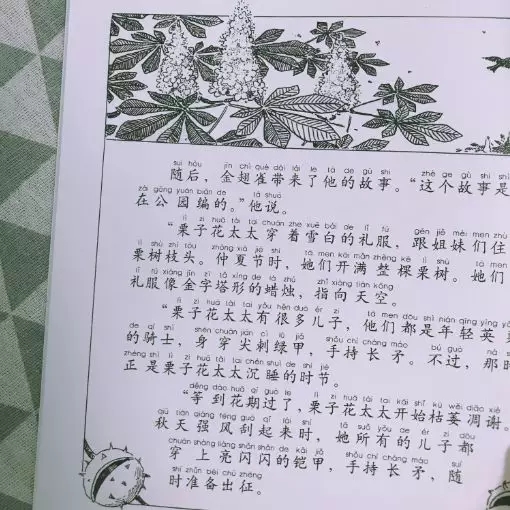 suí hòu jīn chì què dài lái le tā de gù shi zhè ge gù shi
随后，金翅雀带来了他的故事。“这个故事是
zài gōng yuán biān de tā shuō
在公园编的。”他说。
lì zi huā tài tai chuān zhe xuě bái de lǐ fú gēn jiě mèi men zhù
“栗子花太太穿着雪白的礼服，跟姐妹们住
lì shù zhī tóu zhòng xià jié shí tā men kāi mǎn zhěng kē lì shù tā men
栗树枝头。仲夏节时，她们开满整棵栗树。她们
lǐ fú xiàng jīn zì tǎ xíng de là zhú zhǐ xiàng tiān kōng
礼服像金字塔形的蜡烛，指向天空。
lì zi huā tài tai yǒu hěn duō ér zi tā men dōu shì nián qīng yīng
“栗子花太太有很多儿子，他们都是年轻英
de qí shì shēn chuān jiān cì lǜ jiǎ shǒu chí cháng máo bú guò nà
的骑士，身穿尖刺绿甲，手持长矛。不过，那时
zhèng shì lì zi huā tài tai chén shuì de shí jié
正是栗子花太太沉睡的时节。
děng dào huā qī guò le lì zi huā tài tai kāi shǐ kū wěi diāo xiè
“等到花期过了，栗子花太太开始枯萎凋谢。
qiū tiān qiáng fēng guā qǐ lái shí tā suǒ yǒu de ér zi dōu
秋天强风刮起来时，她所有的儿子都
chuān shàng liàng shǎn shǎn de kǎi jiǎ shǒu chí cháng máo suí
穿上亮闪闪的铠甲，手持长矛，随
shí zhǔn bèi chū zhēng
时准备出征。